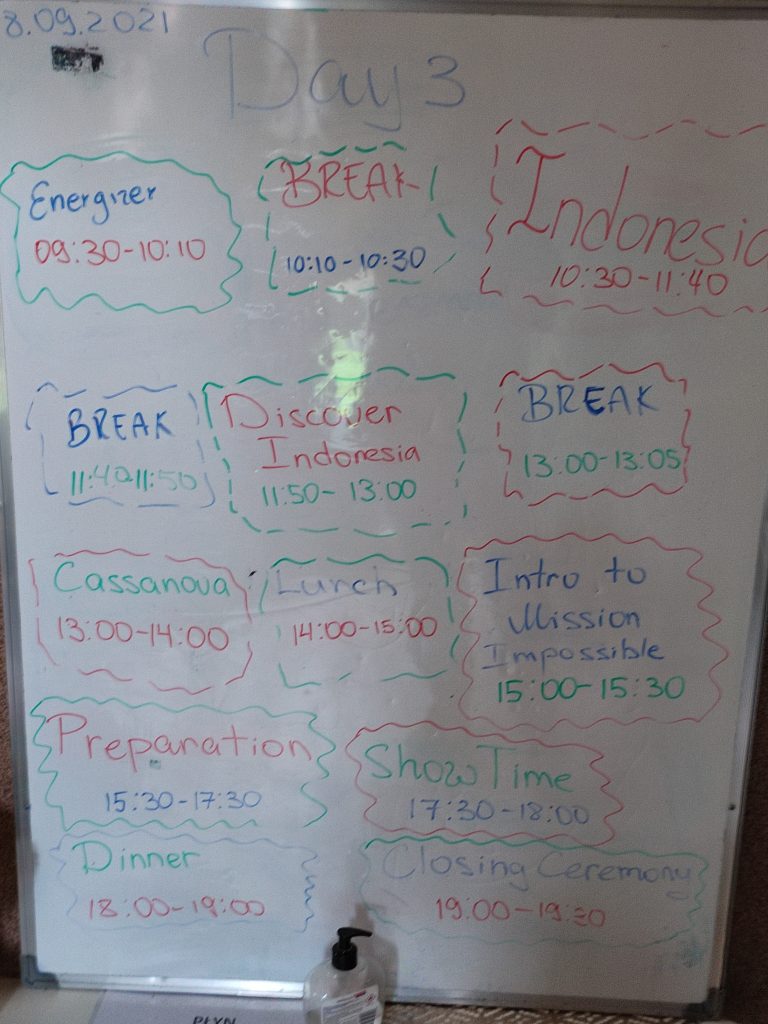 8.09.2021
Day 3
Energizer
09:30-10:10
BREAK
10:10-10:30
Indonesia
10:30-11:40
BREAK
11:40-11:50
Discover
Indonesia
11:50-13:00
BREAK
13:00-13:05
Cassanova
13:00-14:00
Lunch
14:00-15:00
Intro to
Mission
Impossible
15:00-15:30
Preparation
15:30-17:30
Show Time
17:30-18:00
Dinner
18:00-19:00
Closing Ceremony
19:00-19:30
PŁYN